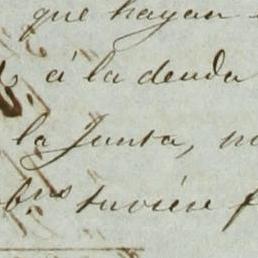 que hayan
á la deuda
la Junta,
tuviere